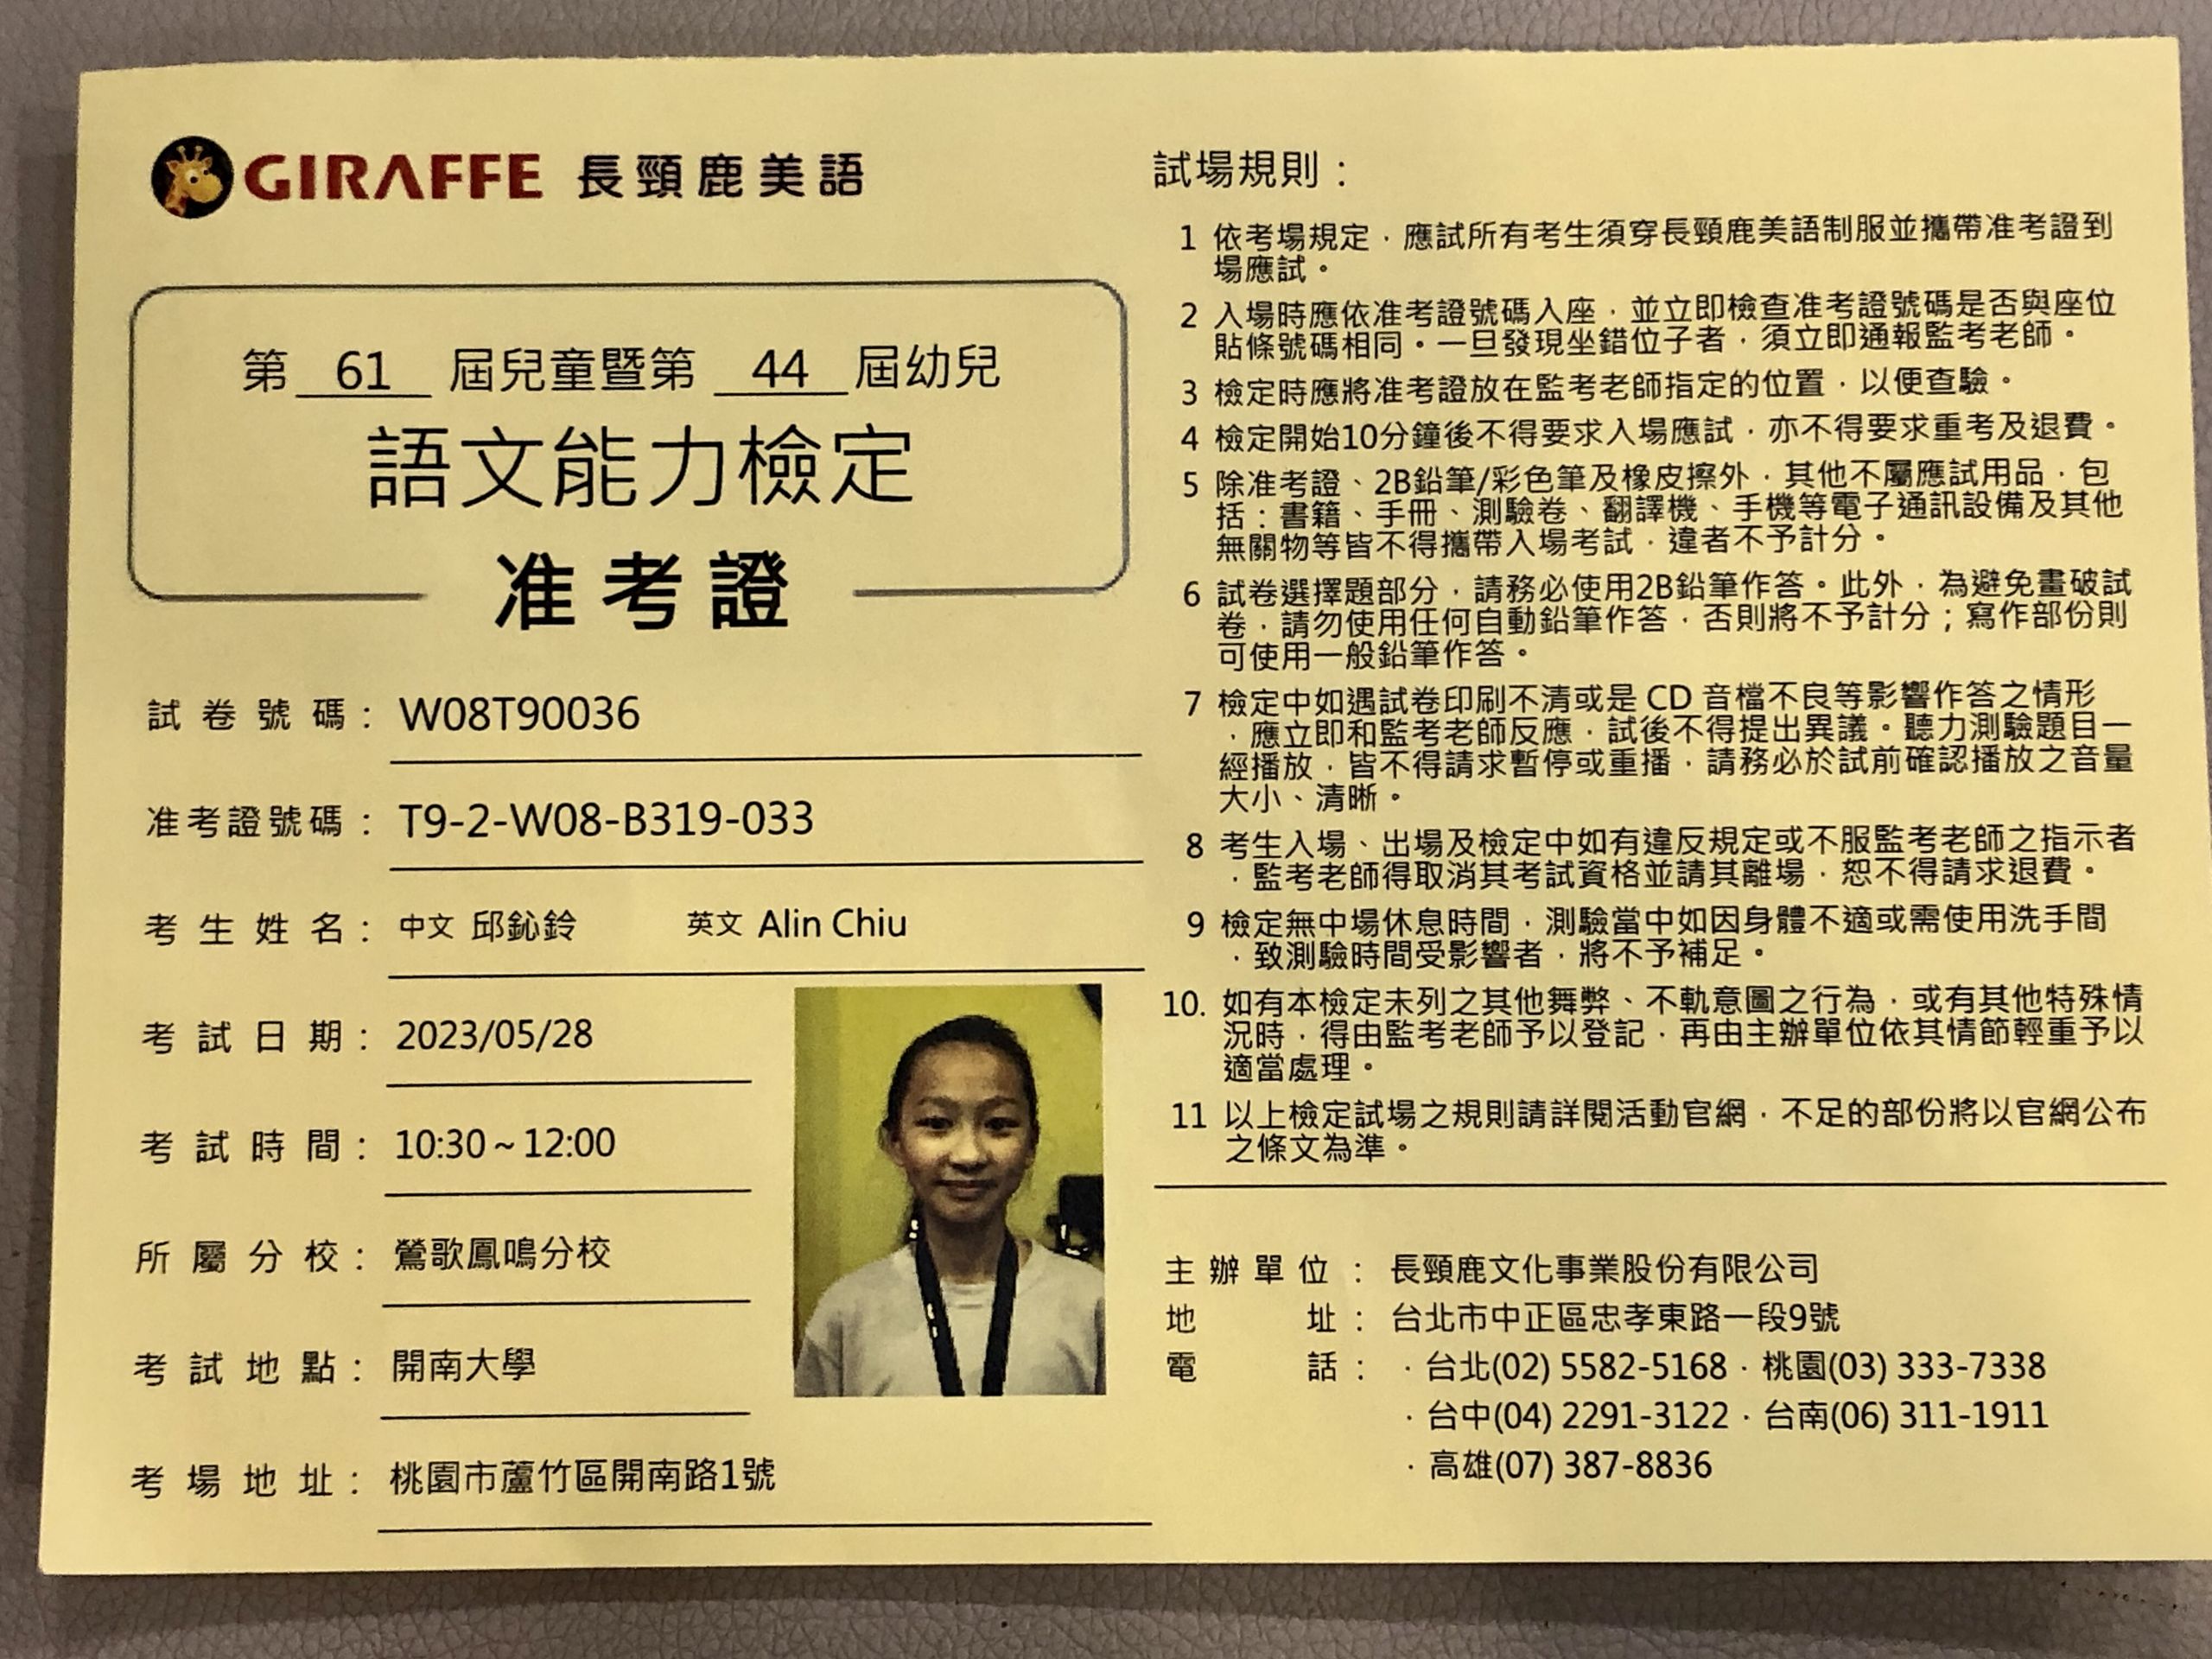 GIRAFFE 長頸鹿美語
第 61 屆兒童暨第 44 屆幼兒
語文能力檢定
准考證
試卷號碼：W08T90036
准考證號碼：T9-2-W08-B319-033
考生姓名：中文 邱鈊鈴 英文 Alin Chiu
考試日期：2023/05/28
考試時間：10:30~12:00
所屬分校：鶯歌鳳鳴分校
考試地點：開南大學
考場地址：桃園市蘆竹區開南路1號
試場規則：
1 依考場規定，應試所有考生須穿長頸鹿美語制服並攜帶准考證到
場應試。
2 入場時應依准考證號碼入座，並立即檢查准考證號碼是否與座位
貼條號碼相同。一旦發現坐錯位子者，須立即通報監考老師。
3 檢定時應將准考證放在監考老師指定的位置，以便查驗。
4 檢定開始10分鐘後不得要求入場應試，亦不得要求重考及退費。
5 除准考證、2B鉛筆/彩色筆及橡皮擦外，其他不屬應試用品，包
括：書籍、手冊、測驗卷、翻譯機、手機等電子通訊設備及其他
無關物等皆不得攜帶入場考試，違者不予計分。
6 試卷選擇題部分，請務必使用2B鉛筆作答。此外，為避免畫破試
卷，請勿使用任何自動鉛筆作答，否則將不予計分；寫作部份則
可使用一般鉛筆作答。
7 檢定中如遇試卷印刷不清或是 CD 音檔不良等影響作答之情形
，應立即和監考老師反應，試後不得提出異議。聽力測驗題目一
經播放，皆不得請求暫停或重播，請務必於試前確認播放之音量
大小、清晰。
8 考生入場、出場及檢定中如有違反規定或不服監考老師之指示者
，監考老師得取消其考試資格並請其離場，恕不得請求退費。
9 檢定無中場休息時間，測驗當中如因身體不適或需使用洗手間
，致測驗時間受影響者，將不予補足。
10. 如有本檢定未列之其他舞弊、不軌意圖之行為，或有其他特殊情
況時，得由監考老師予以登記，再由主辦單位依其情節輕重予以
適當處理。
11 以上檢定試場之規則請詳閱活動官網，不足的部份將以官網公布
之條文為準。
主辦單位：長頸鹿文化事業股份有限公司
地址：台北市中正區忠孝東路一段9號
電話：．台北(02) 5582-5168．桃園(03) 333-7338
．台中(04) 2291-3122．台南(06) 311-1911
．高雄(07) 387-8836